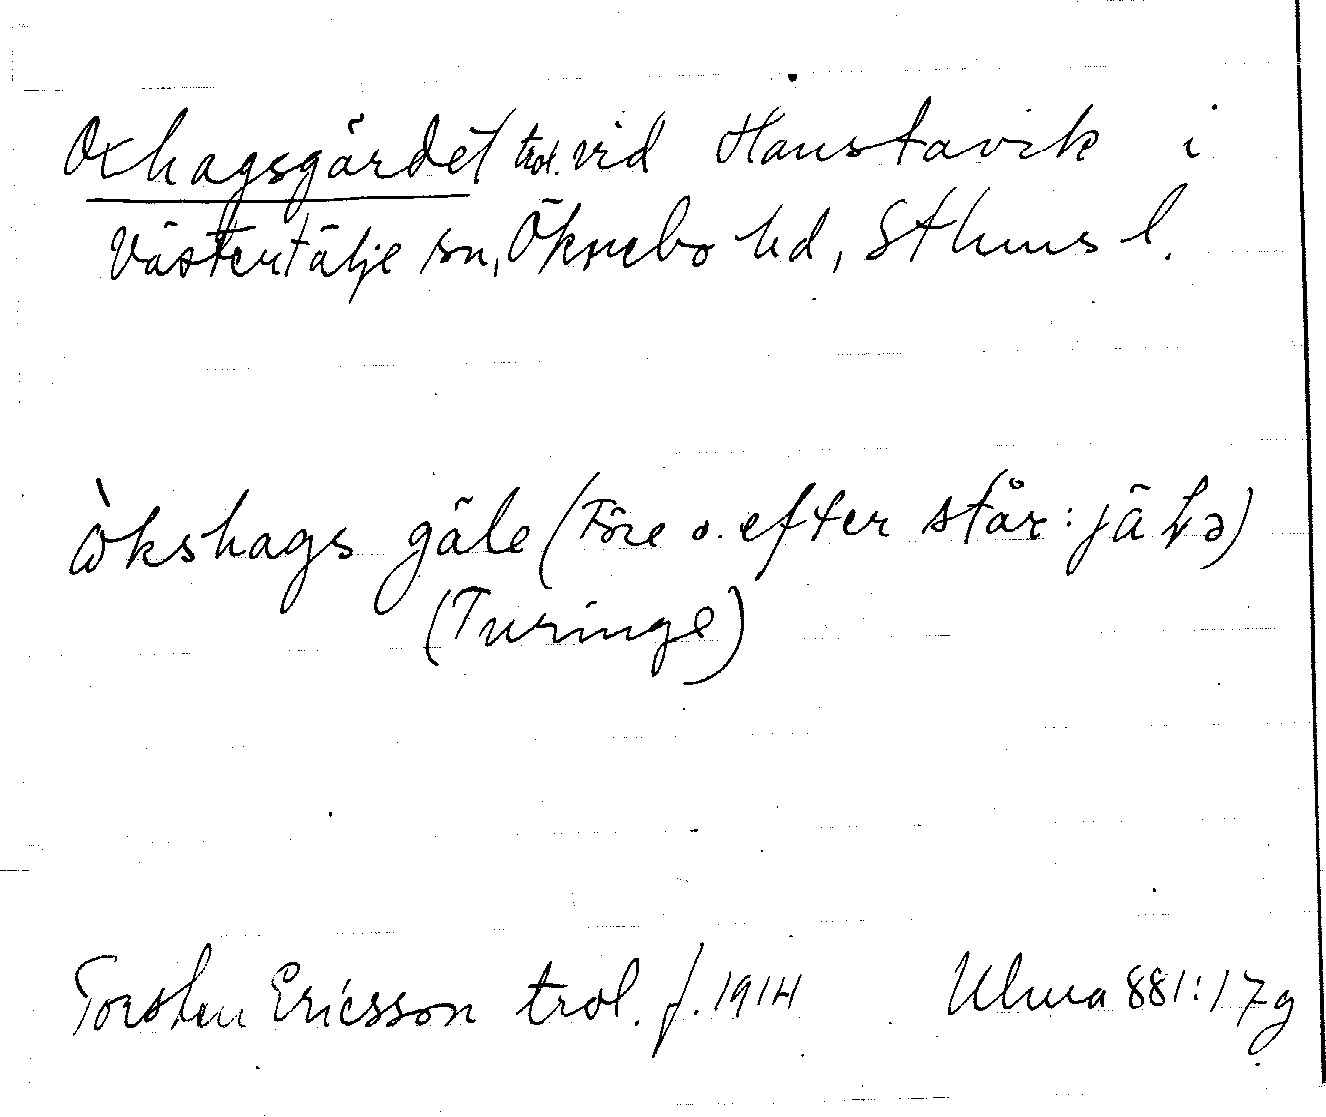 Oxhagsgärdet trol. vid Hanstavik i
Västertälje sn, Öknebo hd, Sthms l.
òkshags gäle (Före o. efter står: jäḷə)
(Turinge)
Torsten Ericsson trol. f. 1914 Ulma 881:17g